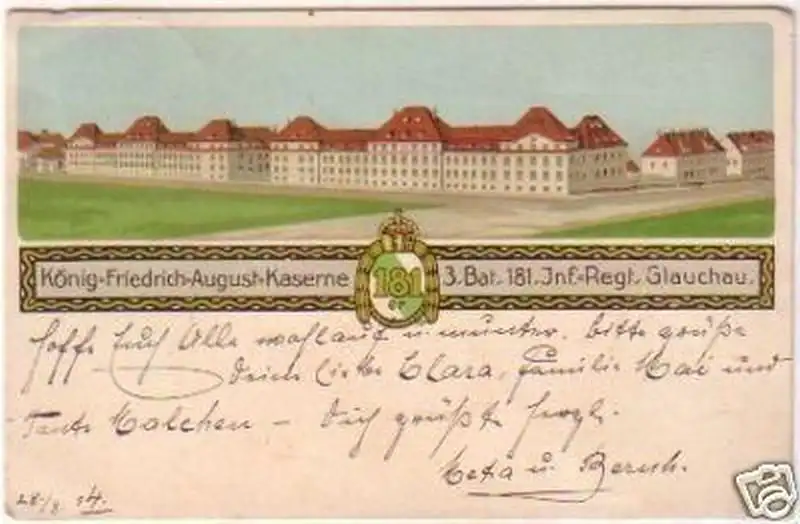 König-Friedrich-August-Kaserne 181 3. Bat. 181. Inf.-Regt. Glauchau.
hoffe Euch Alle wohlauf u. munter, bitte grüße
Deine liebe Clara, Familie Mai und
Tante Malchen – Dich grüßt herzl.
Meta u. Bernh.